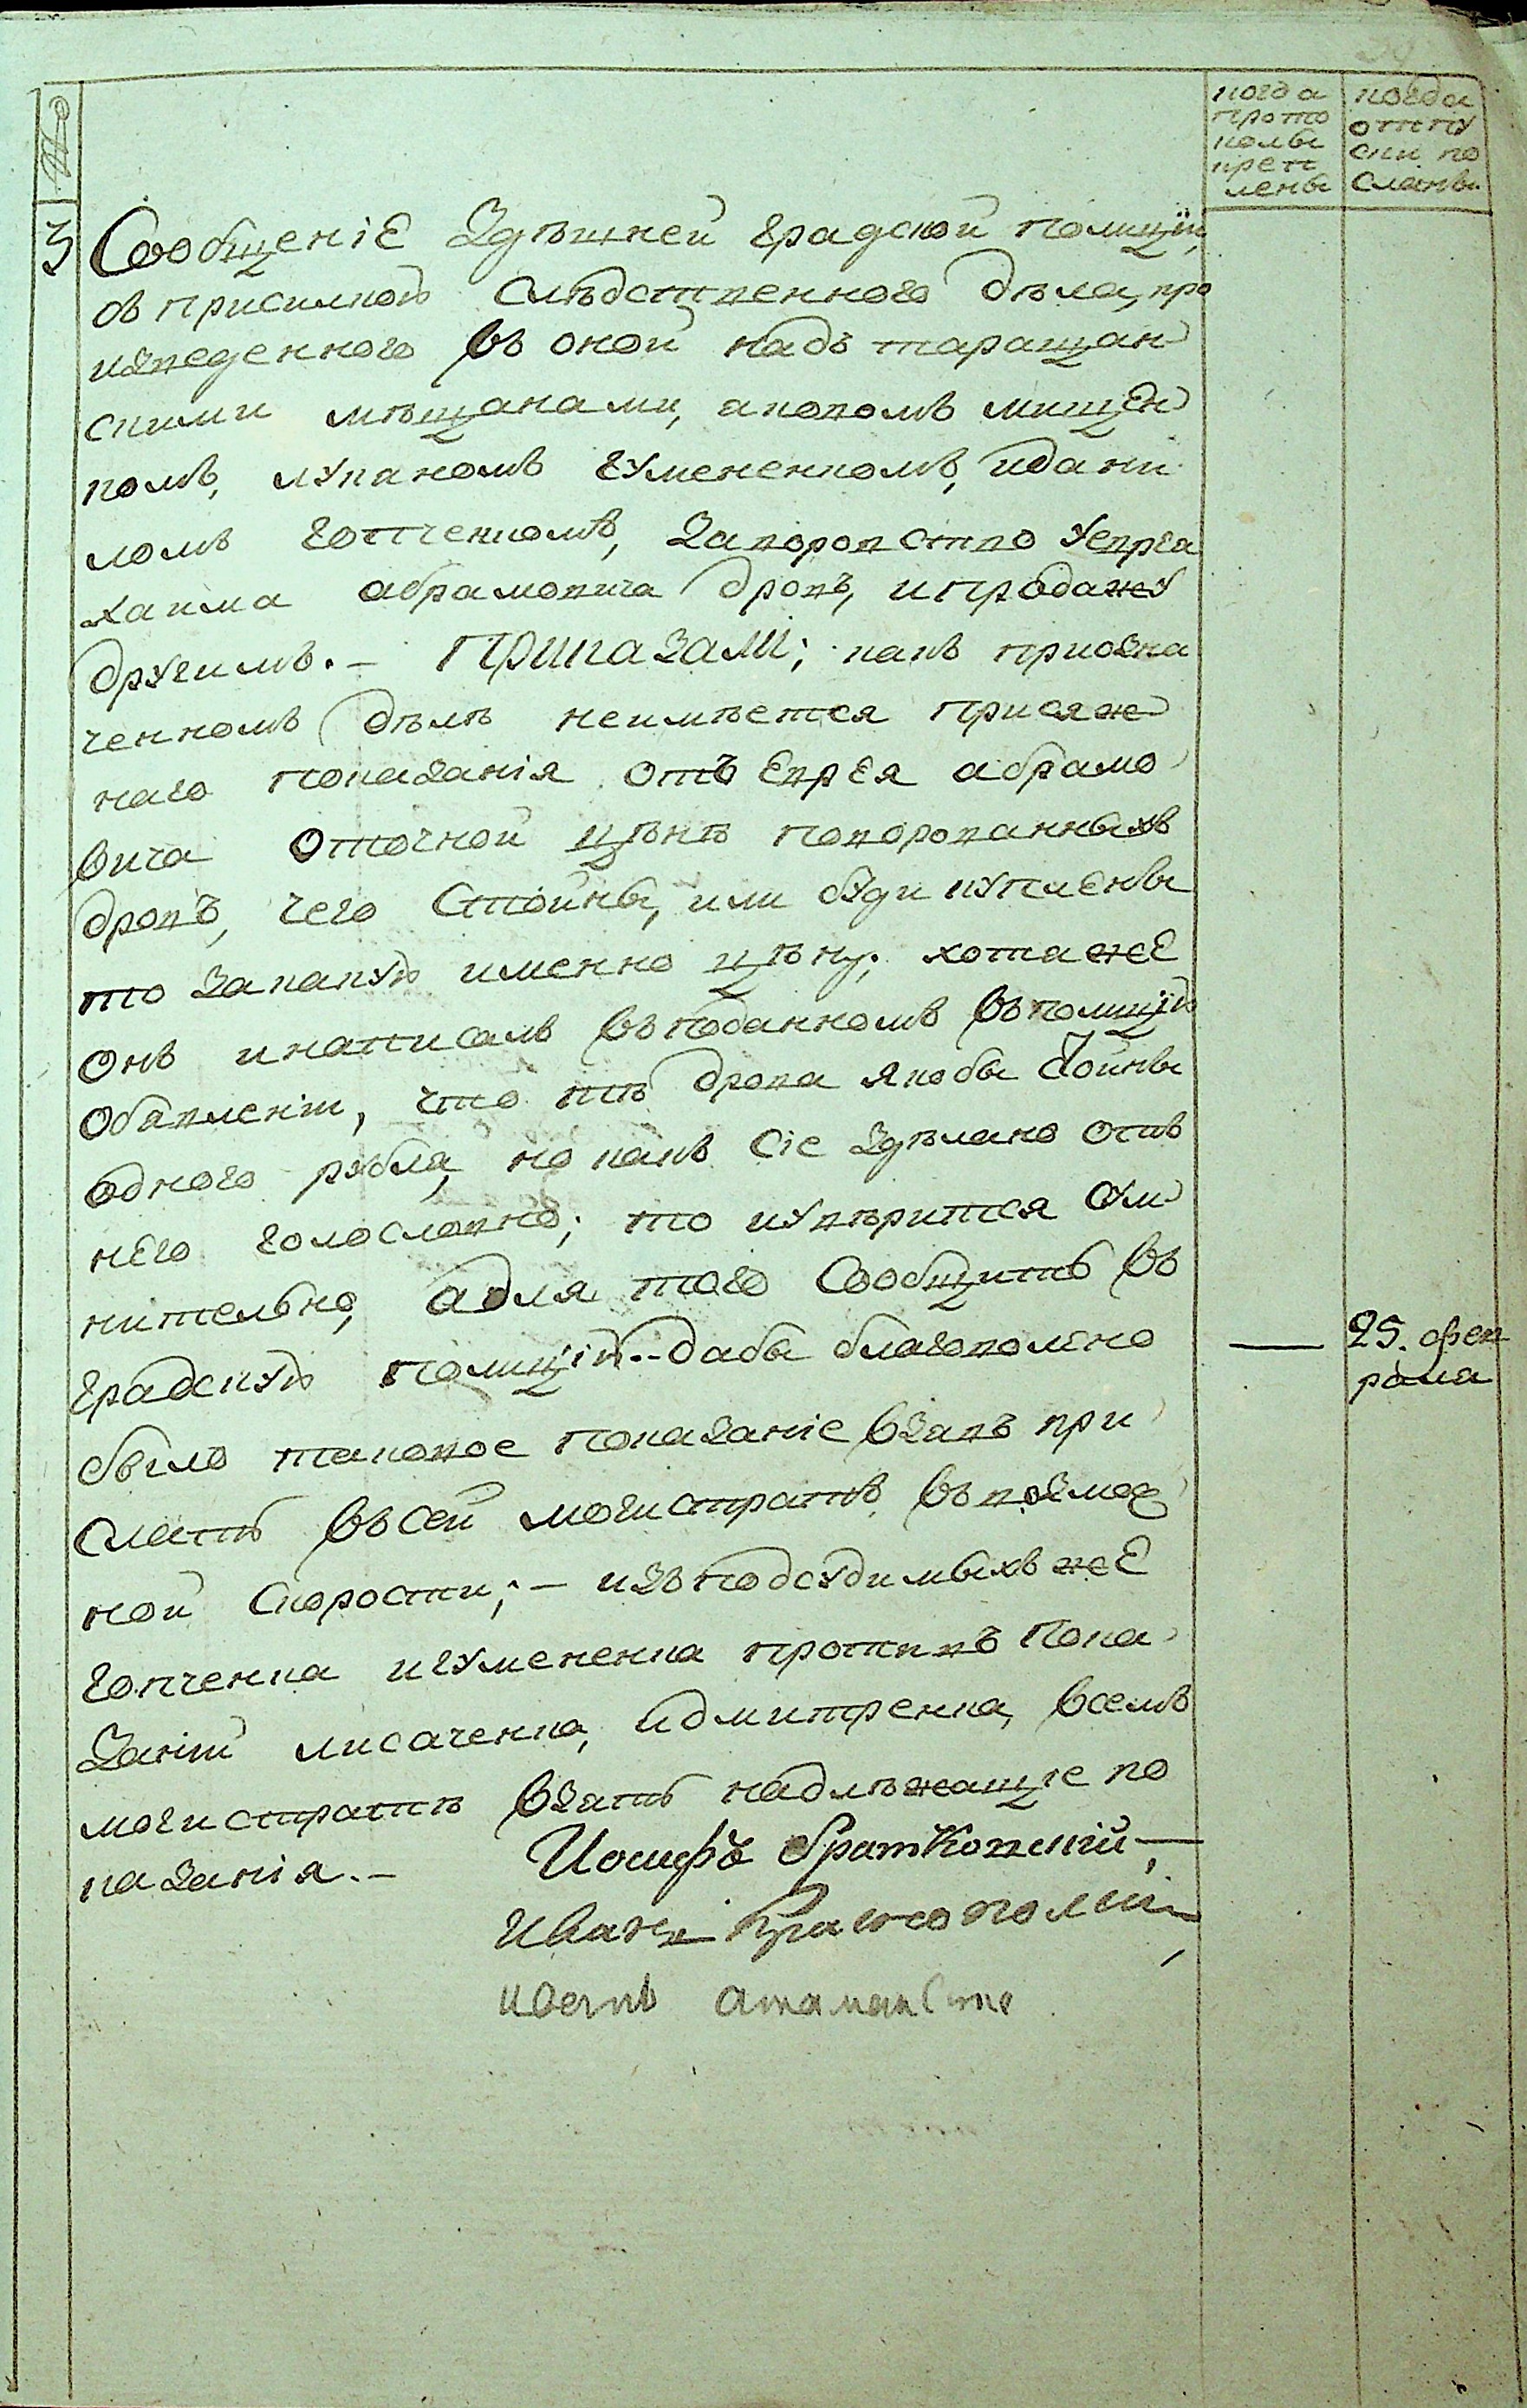 №
когда
прото
колы
креп
лены
когда
отпу
ски по
сланы
3 Сообщеніе Здѣшней градской полицїи,
съ присилкою слѣдственного дѣла, про
изведенного въ оной надъ таращан
скими мѣщанами, яковомъ мищен
комъ, лукяномъ гумененкомъ, идани
ломъ готченкомъ, Заворовство уевреа
хаима абрамовича дровъ, ипродажу
другимъ. – Приказали; какъ приозна
ченномъ дѣлѣ неимѣется присяж
наго показанія отъ Еврея абрамо
вича оточной цѣнѣ поворованныхъ
дровъ, чего стойны, или буди куплены
то закакую именно цѣну; хотя жЕ
онъ инаписалъ вътоданномъ въполицїю
Обявленіи, что тѣ дрова якобы стойны
одного рубля, но какъ сіе Здѣлано отъ
него голословно; то иувѣрится сум
нительно, адля того Сообщить въ
градскую полицїю. – дабы благоволено
было таковое показаніе взявъ при
слать въсей магистратъ въвозмож
ной скорости; – изъподсудимыхъ жЕ
готченка игумененка противъ пока
Заніи лисаченка, идмитренка, всемъ
магистратѣ взять надлѣжащіе по
казанія. –
25. фев
раля
Иосифъ Братковскій
Иванъ Краснопольскій